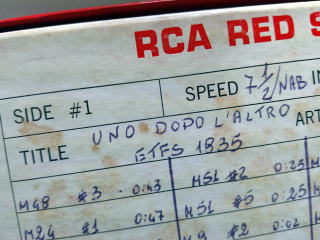 RCA RED S
SIDE #1 SPEED 7 1/2/NAB IN
UNO DOPO L'ALTRO
TITLE ETFS 1835 ART
M48 #3 - 0:43 M51 #2 0:25
M24 #1 0:47 M51 #5 0:25
#2 0:02